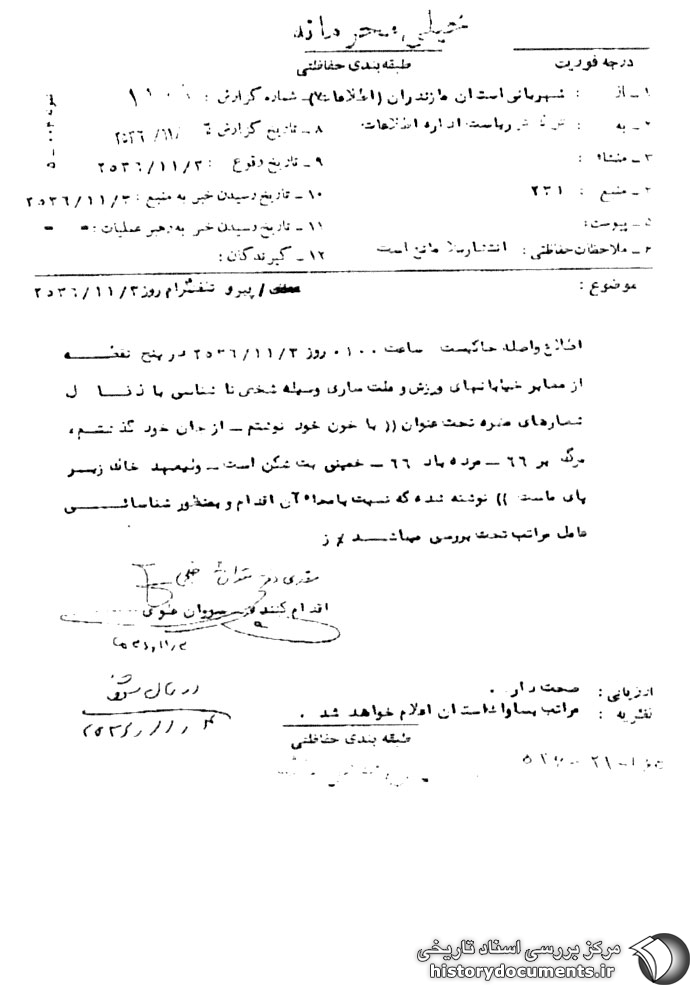 خیلی محرمانه
طبقه بندی حفاظتی
درجه فوریت
۱ـ از : شهربانی استان مازندران (اطلاعات) ۷ـ شماره گزارش :
۲ـ به : ریاست اداره اطلاعات ۸ـ تاریخ گزارش :
۳ـ منشاء : ۹ـ تاریخ وقوع : ۲۵۳۶/۱۱/۳
۴ـ منبع : ۲۳۱ ۱۰ـ تاریخ رسیدن خبر به منبع : ۲۵۳۶/۱۱/۳
۵ـ پیوست: ۱۱ـ تاریخ رسیدن خبر به رهبر عملیات : ـ ـ
۶ـ ملاحظات حفاظتی : انتشار بلا مانع است ۱۲ـ گیرندگان :
نمونه ۰۰۴ ـ ۵
موضوع : / پیرو تلفنگرام روز ۲۵۳۶/۱۱/۳
اطلاع واصله حاکیست ساعت ۰۱۰۰ روز ۲۵۳۶/۱۱/۳ در پنج نقطه
از معابر خیابانهای ورزش و ملت ساری وسیله شخص نا شناسی با ذغال
شعارهای مضره تحت عنوان (( با خون خود نوشتم ـ از جان خود گذشتم ،
مرگ بر ۶۶ ـ مرده باد ۶۶ ـ خمینی بت شکن است ـ ولیعهد خائن زیر
پای ماست )) نوشته شده که نسبت بامحاء آن اقدام و بمنظور شناسائی
عامل مراتب تحت بررسی میباشد
اقدام کننده سروان علوی
ارزیابی : صحت دارد .
نظریه : مراتب بساواک استان اعلام خواهد شد .
۲۵۳۶/۱۱/۴
طبقه بندی حفاظتی
مرکز بررسی اسناد تاریخی
historydocuments.ir